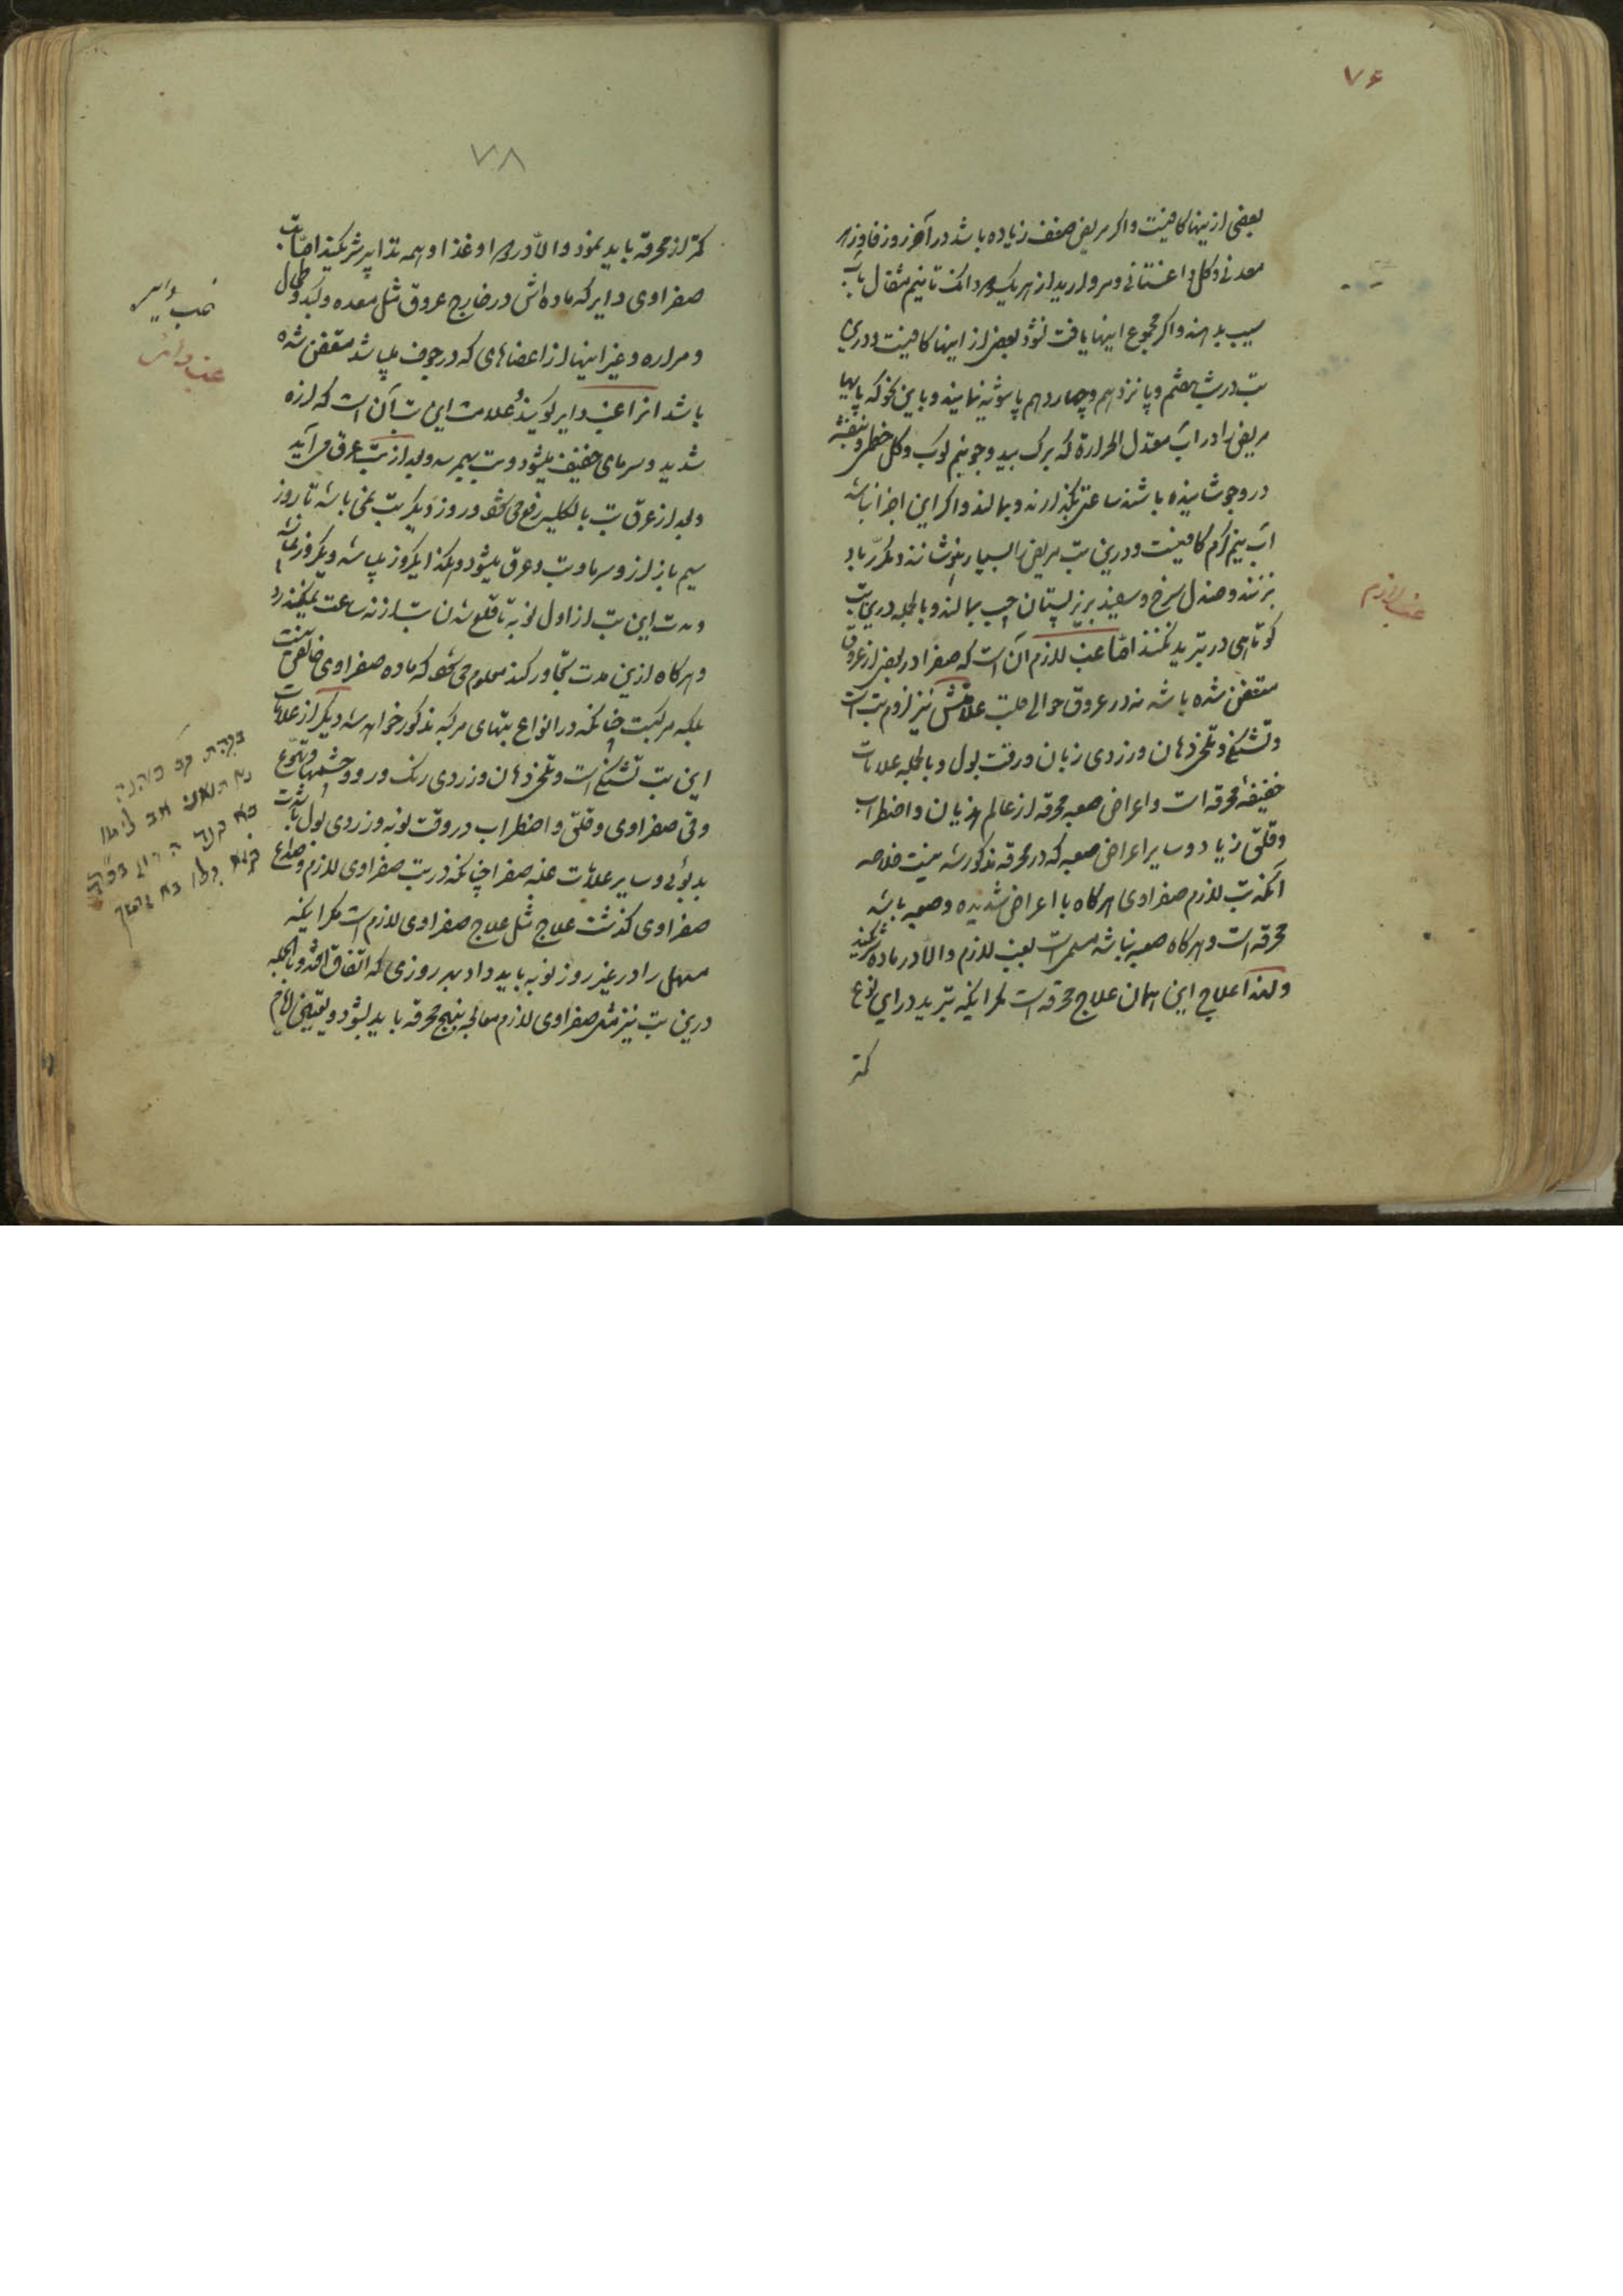 ٧۶
بعضی ازینها کافیست واکر مریض ضعف زیاده باشد در آخر روز فادزهر
معدنی وکل داغستانی ومروارید از هریک دانک تا نیم مثقال بآب
سیب بدهند واکر مجموع اینها یافت نشود بعضی از اینها کافیست ودرین
تب در شب هفتم ویازدهم وچهاردهم پاشویه نمایند وباین نحو که پایهای
مریض را در آب معتدل الحرارة که برک بید وجو نیم کوب وکل خطمی وبنفشه
در وجوشانیده باشند ساعتی بگذارند وبمالند واکر این اجزا نباشد
آب نیم کرم کافیست ودرین تب مریض را بسیار بنوشانند ومکرر باد
بزنند وصندل سرخ وسفید بر زیر پستان چپ بمالند وبالجمله درین تب
کوتاهی در تبرید نکنند امّا غب لازم آن است که صفرا در بعضی از عروق
متعفن شده باشد نه در عروق حوالی قلب علامتش نیز لزوم تب است
وتشنکی وتلخی دهان وزردی زبان ورقت بول وبالجمله علامات
خفیفهٔ محرقه است واعراض صعبه محرقه از عالم هذیان واضطراب
وقلق زیاد وسایر اعراض صعبه که در محرقه مذکور شد نیست خلاصه
آنکه تب لازم صفراوی هرکاه با اعراض شدیده وصعبه باشد
محرقه است وهرکاه صعبه نباشد مسمی است بغب لازم والّا در ماده شریکند
ولهذا علاج این همان علاج محرقه است مکر اینکه تبرید در این نوع
کمتر
غب لازم
٧٨
کمتر از محرقه باید نمود والّا در دوا وغذا وهمه تدابیر شریکند امّا تب
صفراوی دایر که ماده اش در خارج عروق مثل معده وکبد وطحال
ومراره وغیر اینها از اعضاهای که در جوف میباشد متعفن شده
باشد انرا غب دایر کویند وعلامت این تب آن است که لرزه
شدید وسرمای خفیف میشود وتب بهم رسد وبعد از تب عرق می آید
وبعد از عرق تب بالکلیه رفع می شود وروز دیکر تب نمی باشد تا روز
سیم باز لرز وسرما وتب وعرق میشود وهکذا یکروز میباشد ویکروز نمیباشد
ومدت این تب از اول نوبه تا قلع شدن تب از نه ساعت نمیکذرد
وهرکاه ازین مدت تجاوز کند معلوم می شود که ماده صفراوی خالص نیست
بلکه مرکبست چنانکه در انواع تبهای مرکبه مذکور خواهد شد دیکر از علامات
این تب تشنکی است وتلخی دهان وزردی رنک ورو وچشمها وتهوع
وقی صفراوی وقلق واضطراب در وقت نوبه وزردی بول با شدت
بدبوئی وسایر علامات غلبه صفرا چنانکه در تب صفراوی لازم وصداع
صفراوی کذشت علاج مثل علاج صفراوی لازم است مکر اینکه
مسهل را در غیر روز نوبه باید داد بهر روزی که اتفاق افتد وبالجمله
درین تب نیز مثل صفراوی لازم معالجه بنهج محرقه باید بشود
غب دایر
غب دایر